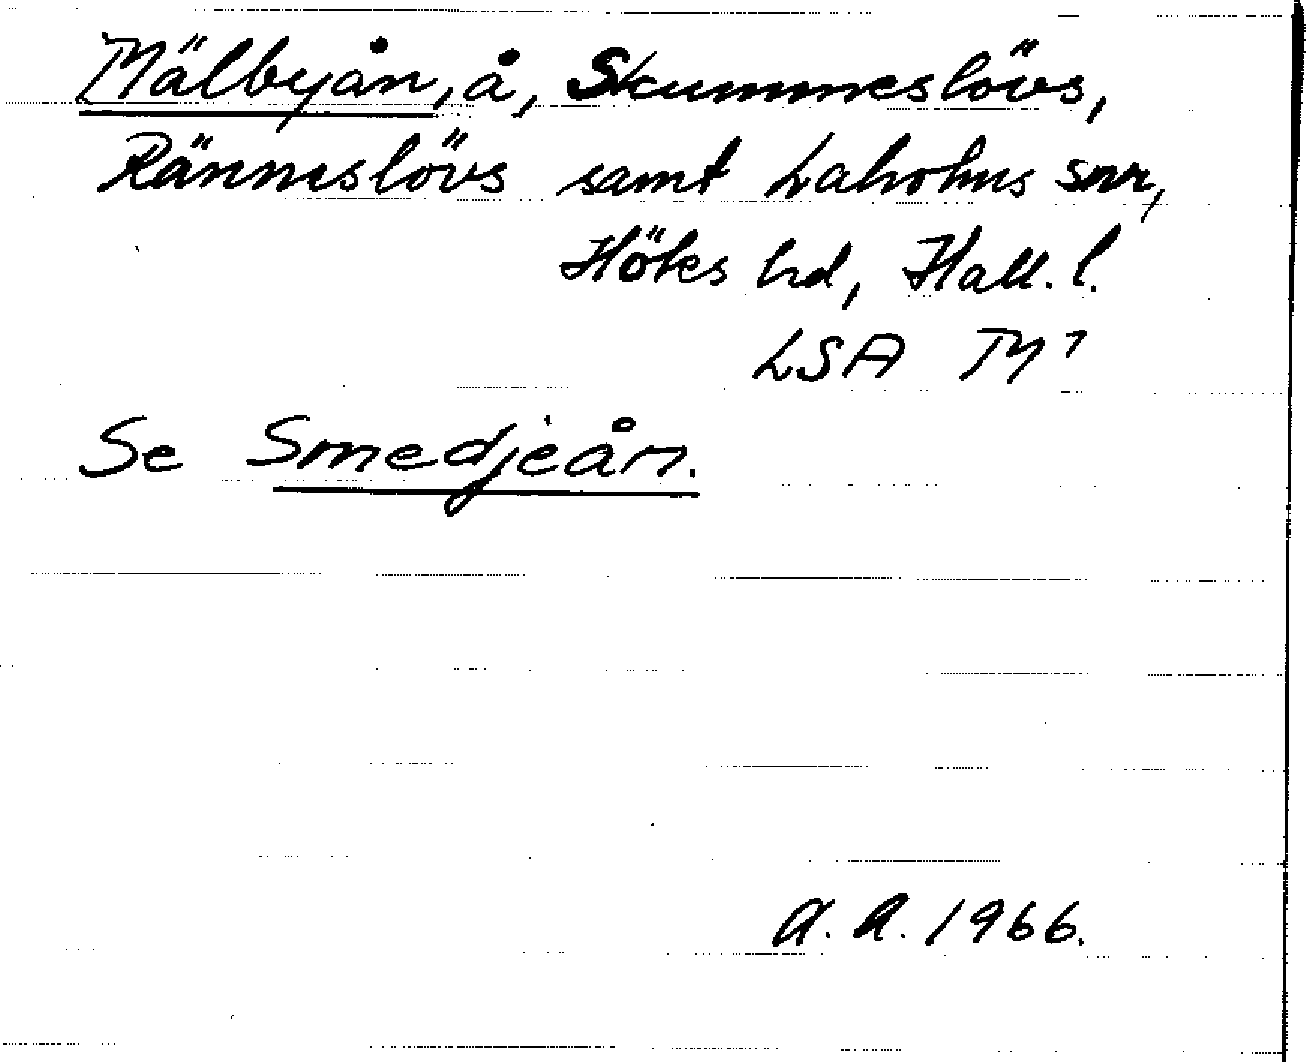 Mälbyån, å, Skummeslövs,
Ränneslövs samt Laholms snr,
Höks hd, Hall. l.
LSA M 7
Se Smedjeån.
A. A. 1966.